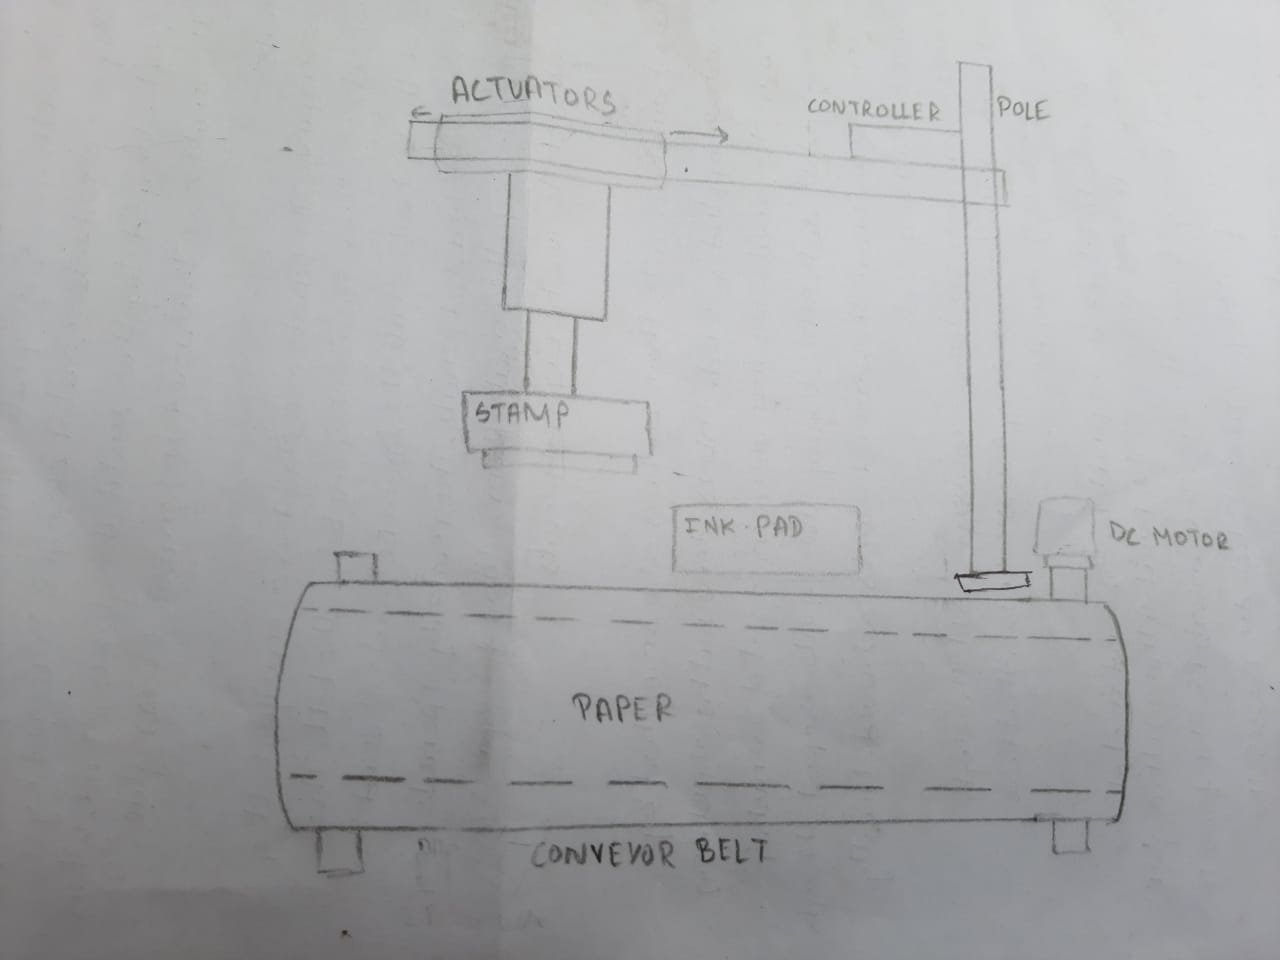 ACTUATORS
CONTROLLER
POLE
STAMP
INK PAD
DC MOTOR
PAPER
CONVEYOR BELT